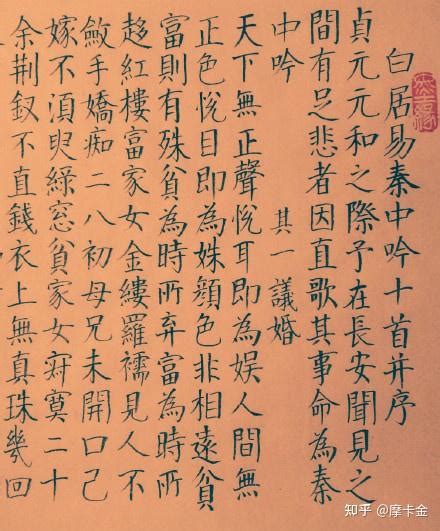 白居易秦中吟十首并序
貞元元和之際予在長安聞見之
間有足悲者因直歌其事命為秦
中吟 其一議婚
天下無正聲悅耳即為娱人間無
正色悅目即為姝顏色非相遠貧
富則有殊貧為時所弃富為時所
趍紅樓富家女金縷羅襦見人不
斂手嬌痴二八初母兄未開口己
嫁不湏臾綠窓貧家女寂寞二十
余荆釵不直錢衣上無真珠幾回
知乎 @摩卡金